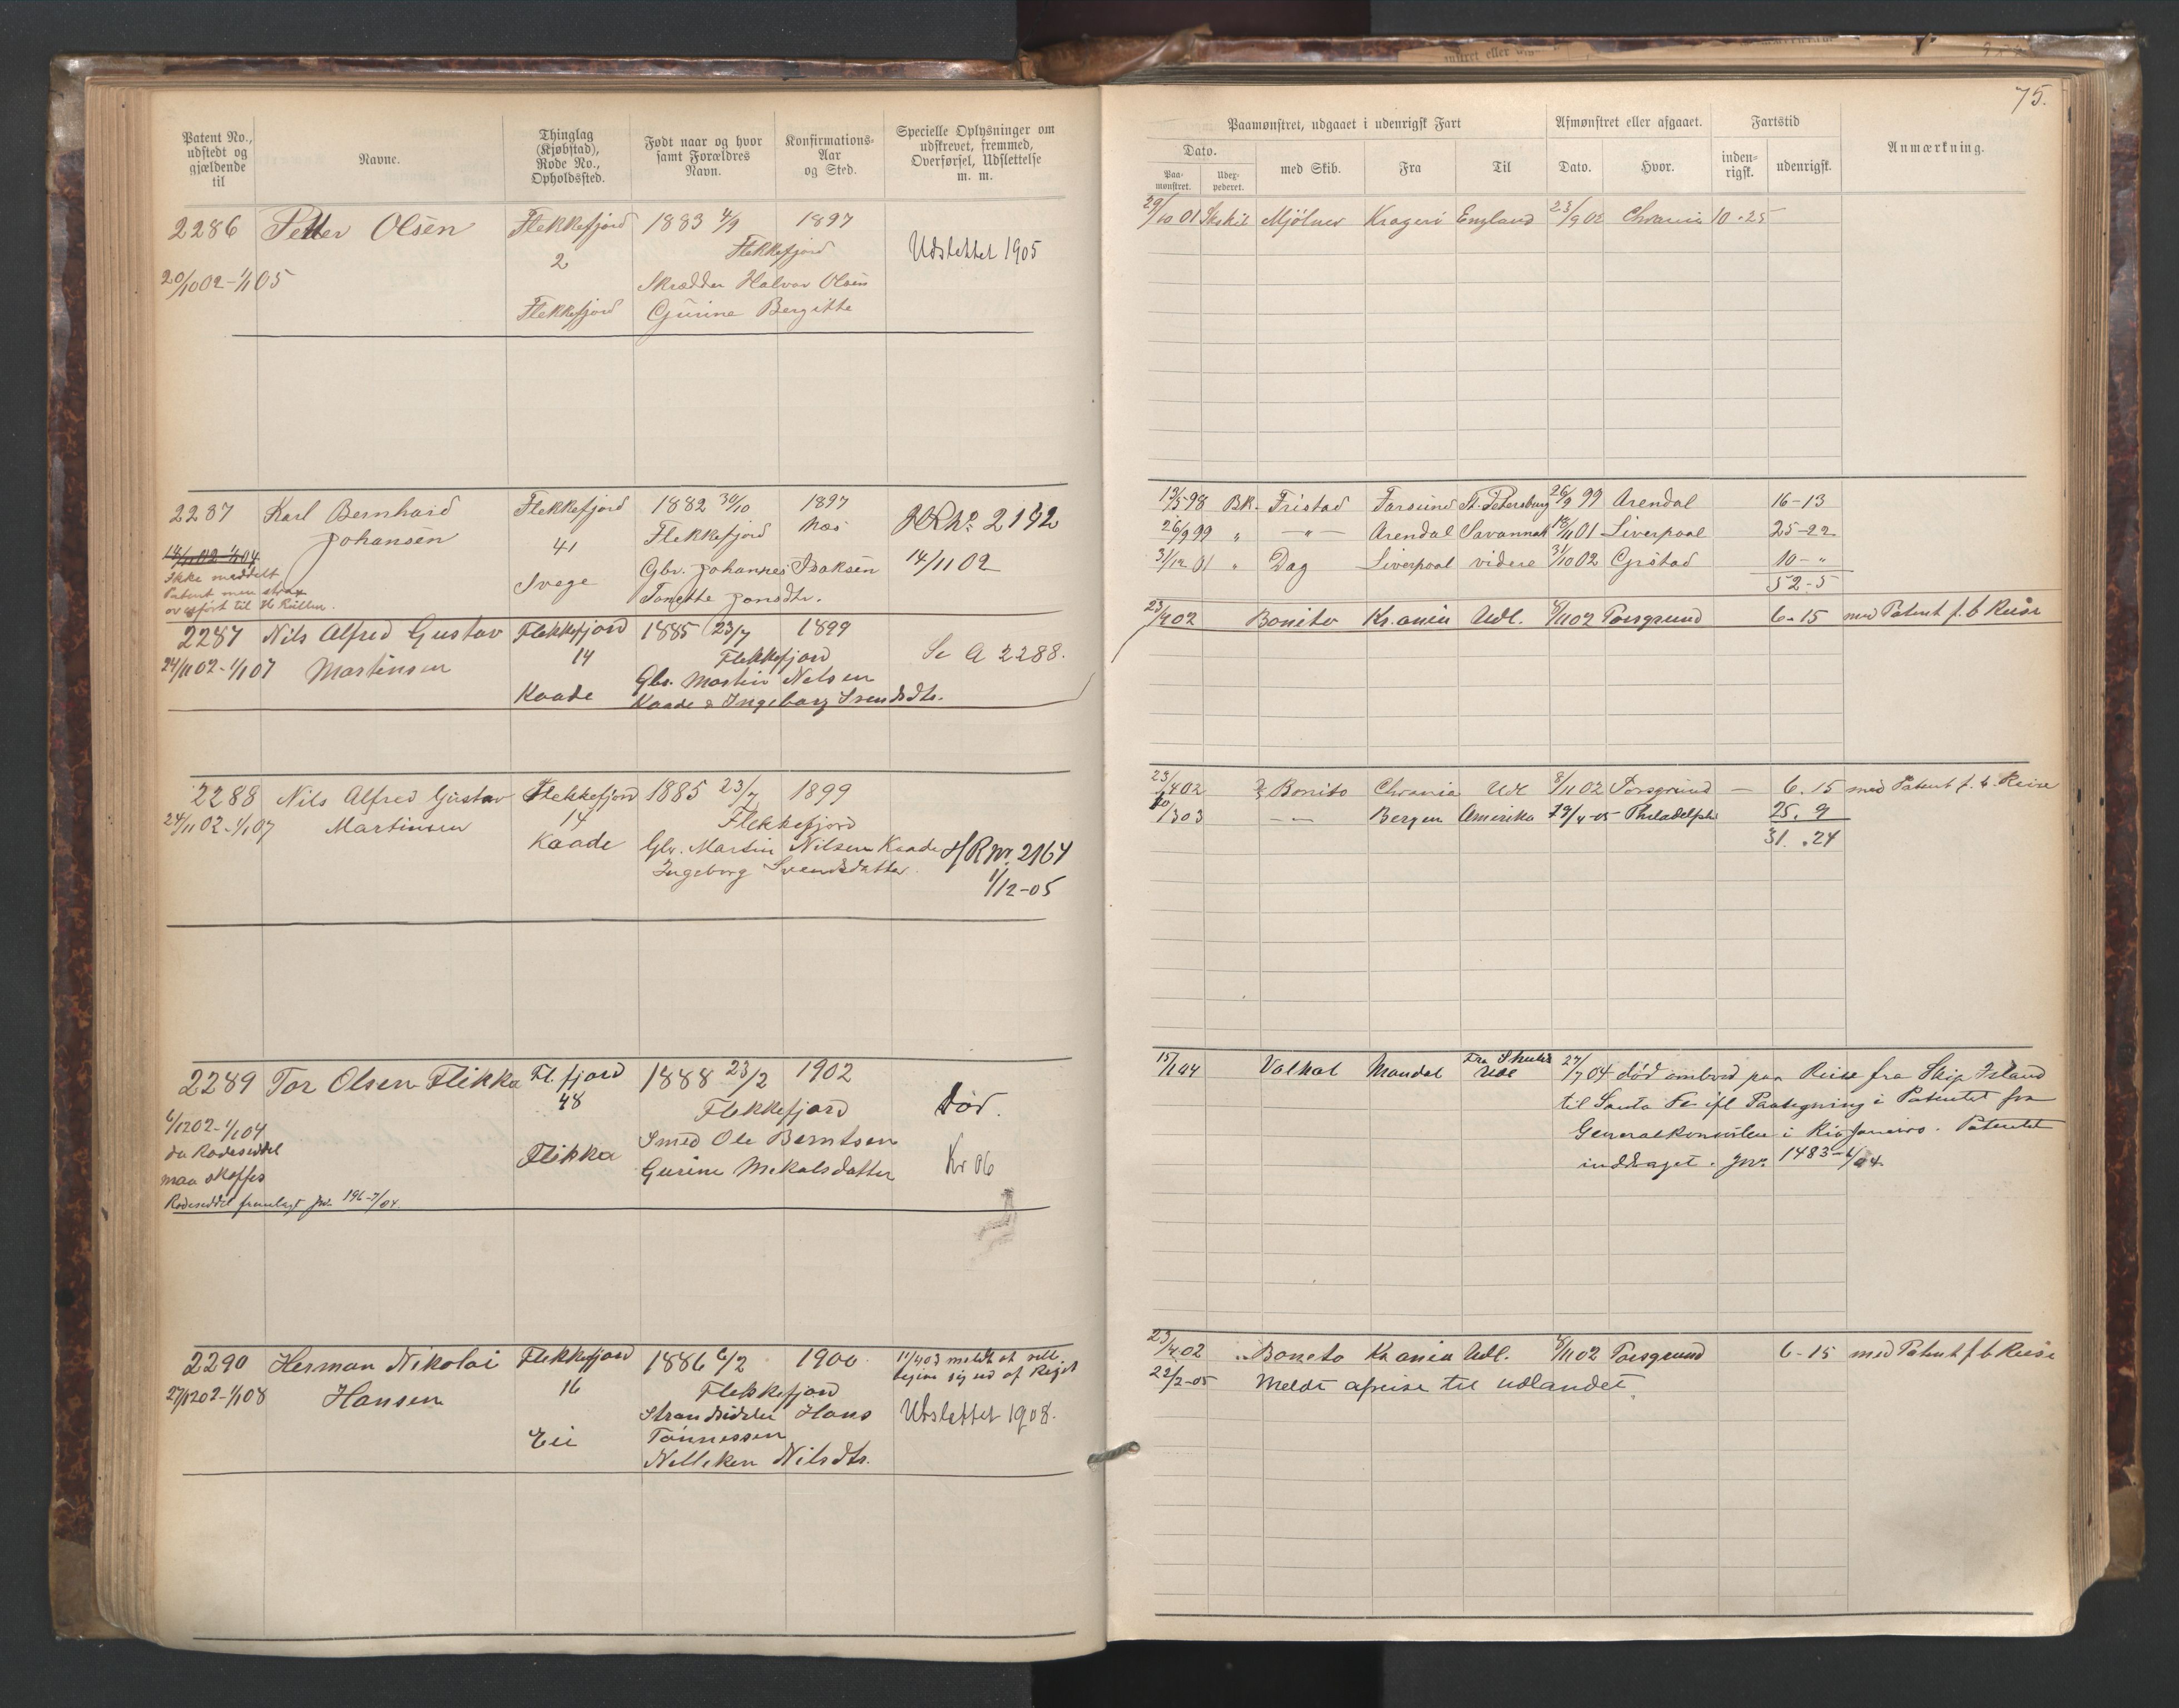 75.
Patent No., udstedt og gjældende til
Navne.
Thinglag (Kjøbstad), Rode No., Opholdssted.
Født naar og hvor samt Forældres Navn.
Konfirmations-Aar og Sted.
Specielle Oplysninger om udskrevet, fremmed, Overførsel, Udslettelse m. m.
Paamønstret, udgaaet i udenrigsk Fart
Afmønstret eller afgaaet.
Fartstid
Anmærkning.
Dato.
med Skib.
Fra
Til
Dato.
Hvor.
inden-rigsk.
udenrigsk.
Paa-mønstret.
Udex-pederet.
2286 Petter Olsen Flekkefjord 1883 4/9 1897
2 Flekkefjord Udslettet 1905
20/10 02 - 1/1 05 Skrædder Halvor Olsen
Flekkefjord Gurine Bergitte
29/10 01 Mjölner Kragerö England 23/9 02 Chrania 10.25
2287 Karl Bernhard Flekkefjord 1882 30/10 1897
Johansen 41 Flekkefjord Næs HR No. 2192
14/11 02 - 1/1 04
Ikke meddelt Svege Gbr. Johannes Isaksen 14/11 02
Patent men strax Tonette Jonsdtr.
overført til H Rullen.
12/5 98 Bk. Fristad Farsund St. Petersburg 26/9 99 Arendal 16-13
26/9 99 " -"- Arendal Savannah 18/11 01 Liverpool 25-22
31/12 01 " Dag Liverpool videre 31/10 02 Grstad 10-"
52-5
2287 Nils Alfred Gustav Flekkefjord 1885 23/7 1899
24/11 02 - 1/1 07 Martinsen 14 Flekkefjord Se A 2288.
Kaade Gbr. Martin Nilsen
Kaade & Ingeborg Svendsdtr.
23/4 02 Bonito Kr.ania Udl. 8/11 02 Porsgrund 6-15 med Patent f. b Reise
2288 Nils Alfred Gustav Flekkefjord 1885 23/7 1899
24/11 02 - 1/1 07 Martinsen 14 Flekkefjord
Kaade Gbr. Martin Nilsen Kaade HR No. 2164
Ingeborg Svendsdatter. 1/12-05
23/4 02 Bonito Chrania Udl 8/11 02 Porsgrund — 6.15 med Patent f. b. Reise
10/3 03 -"- Bergen Amerika 19/4-05 Philadelphi 25.9
31.24
2289 Tor Olsen Flikka Fl.fjord 1888 23/2 1902
48 Flekkefjord død.
6/12 02 - 1/1 04 Smed Ole Berntsen
da Rodeseddel Flikka Gurine Mikalsdatter Kr 06
maa skaffes
Rodeseddel fremlagt jno. 196-7/04.
15/1 04 Valhal Mandal Udl 27/7 04 død ombord paa Reise fra Ship Island
til Santa Fe ifl Paategning i Patentet fra
Generalkonsulen i Rio Janeiro. Patentet
inddraget. jno. 1483
2290 Herman Nikolai Flekkefjord 1886 6/2 1900
27/12 02 - 1/1 08 Hansen 16 Flekkefjord 11/4 03 meldt at ville
begive sig ud af Riget
Eie Strandsidder Hans Udslettet 1908.
Tönnessen
Nelleken Nilsdtr.
23/4 02 " Boneto Kr.ania Udl. 8/11 02 Porsgrund 6-15 med Patent f b Reise
22/2-05 Meldt afreise til udlandet.